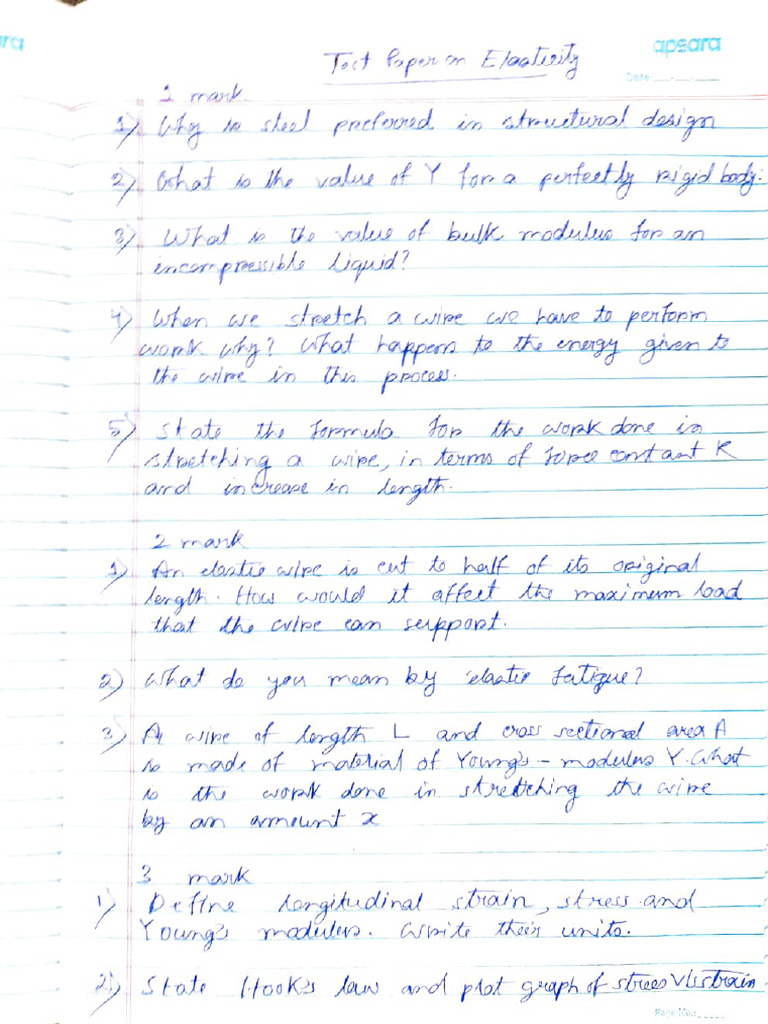 ara
apsara
Test Paper on Elasticity
Date
1 mark
1) Why is steel preferred in structural design
2) What is the value of Y for a perfectly rigid body.
3) What is the value of bulk modulus for an
incompressible liquid?
4) When we stretch a wire we have to perform
work why? What happens to the energy given to
the wire in this process.
5) State the formula for the work done in
stretching a wire, in terms of force constant K
and increase in length.
2 mark
1) An elastic wire is cut to half of its original
length. How would it affect the maximum load
that the wire can support.
2) What do you mean by elastic fatigue?
3) A wire of length L and cross sectional area A
is made of material of Young's - modulus Y. What
is the work done in stretching the wire
by an amount x
3 mark
1) Define longitudinal strain, stress and
Young's modulus. Write their units.
2) State Hook's law and plot graph of stress V/s strain.
Page No.: